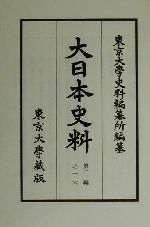 東京大學史料編纂所編纂
大日本史料
第二編
東京大學藏版